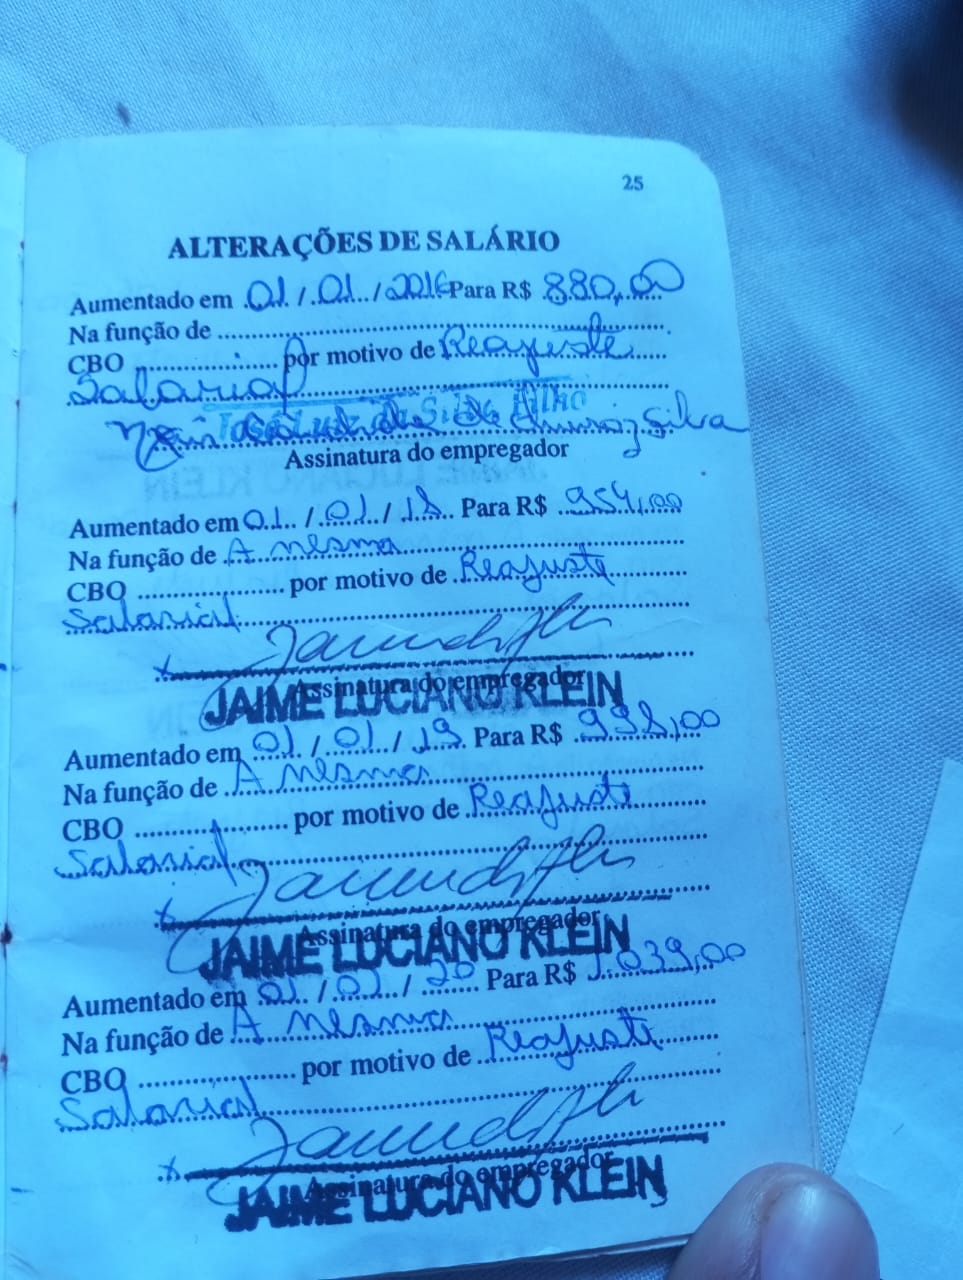 25
ALTERAÇÕES DE SALÁRIO
Aumentado em 01 / 01 / 2016 Para R$ 880,00
Na função de
CBO por motivo de Reajuste
Salarial
José Luiz da Silva Filho
Silva
Assinatura do empregador
Aumentado em 01 / 01 / 18 Para R$ 954,00
Na função de A mesma
CBO por motivo de Reajuste
Salarial
Assinatura do empregador
JAIME LUCIANO KLEIN
Aumentado em 01 / 01 / 19 Para R$ 998,00
Na função de A mesma
CBO por motivo de Reajuste
Salarial
Assinatura do empregador
JAIME LUCIANO KLEIN
Aumentado em 01 / 01 / 20 Para R$ 1.039,00
Na função de A mesma
CBO por motivo de Reajuste
Salarial
Assinatura do empregador
JAIME LUCIANO KLEIN